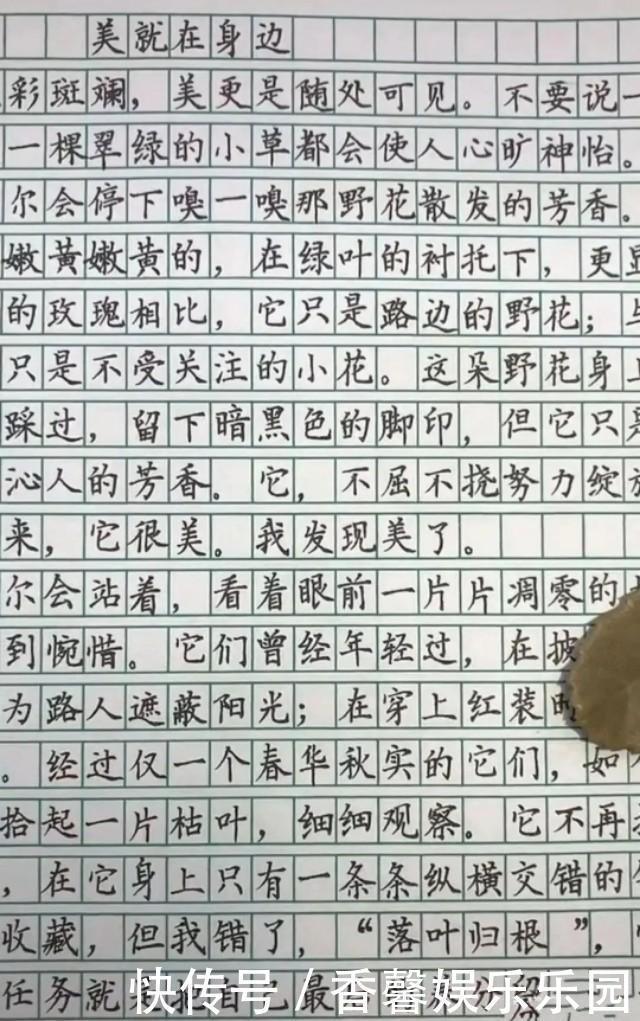 美就在身边
彩斑斓，美更是随处可见。不要说一
一棵翠绿的小草都会使人心旷神怡。
尔会停下嗅一嗅那野花散发的芳香。
嫩黄嫩黄的，在绿叶的衬托下，更显
的玫瑰相比，它只是路边的野花；与
只是不受关注的小花。这朵野花身上
踩过，留下暗黑色的脚印，但它只是
沁人的芳香。它，不屈不挠努力绽放
来，它很美。我发现美了。
尔会站着，看着眼前一片片凋零的
到惋惜。它们曾经年轻过，在披
为路人遮蔽阳光；在穿上红装时
。经过仅一个春华秋实的它们，如
拾起一片枯叶，细细观察。它不再
，在它身上只有一条条纵横交错的
收藏，但我错了，“落叶归根”，
任务就是把自己最
快传号/香馨娱乐乐园